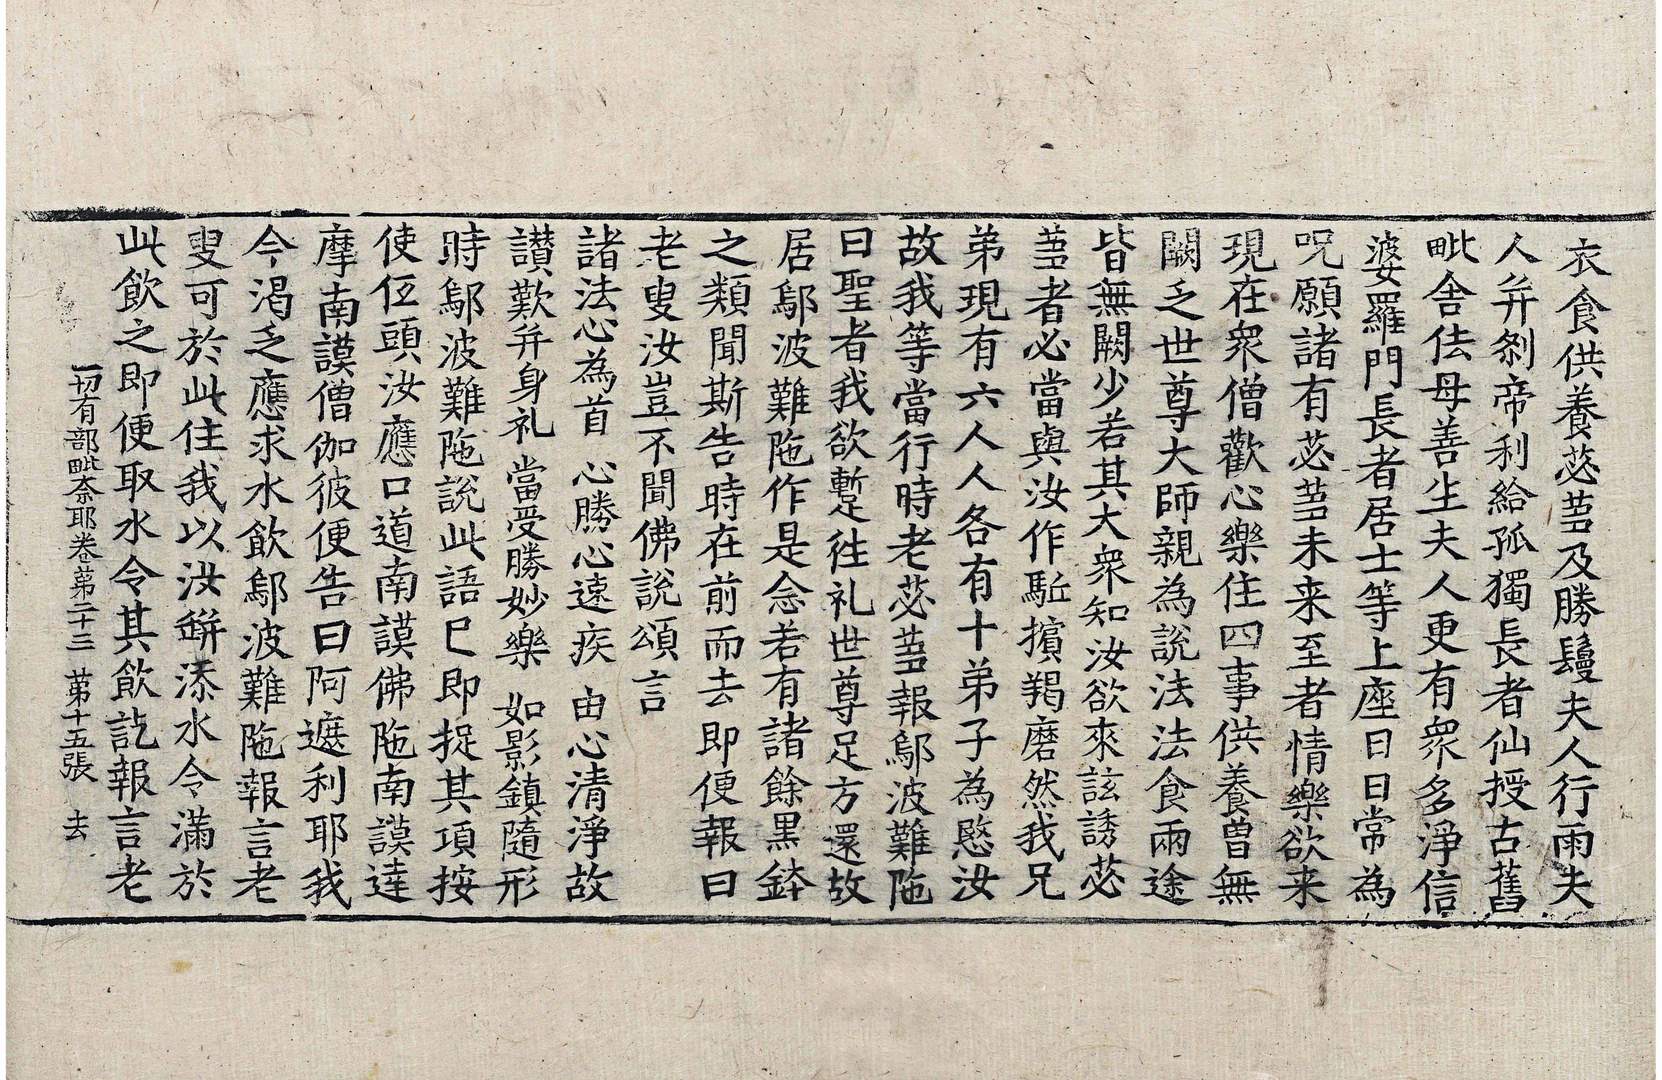 衣食供養苾蒭及勝鬘夫人行雨夫
人并剎帝利給孤獨長者仙授古舊
毗舍佉母善生夫人更有衆多淨信
婆羅門長者居士等上座日日常為
呪願諸有苾蒭未来至者情樂欲来
現在衆僧歡心樂住四事供養曾無
闕乏世尊大師親為說法法食兩途
皆無闕少若其大衆知汝欲來該誘苾
蒭者必當與汝作駈擯羯磨然我兄
弟現有六人人各有十弟子為愍汝
故我等當行時老苾蒭報鄔波難陁
曰聖者我欲暫往礼世尊足方還故
居鄔波難陁作是念若有諸餘黑鉢
之類聞斯告時在前而去即便報曰
老叟汝豈不聞佛說頌言
諸法心為首 心勝心速疾 由心清淨故
讃歎并身礼 當受勝妙樂 如影鎮隨形
時鄔波難陁說此語已即捉其項按
使低頭汝應口道南謨佛陁南謨達
摩南謨僧伽彼便告曰阿遮利耶我
今渴乏應求水飲鄔波難陁報言老
叟可於此住我以汝缾添水令滿於
此飲之即便取水令其飲訖報言老
一切有部毗奈耶卷第二十三 第十五張 去